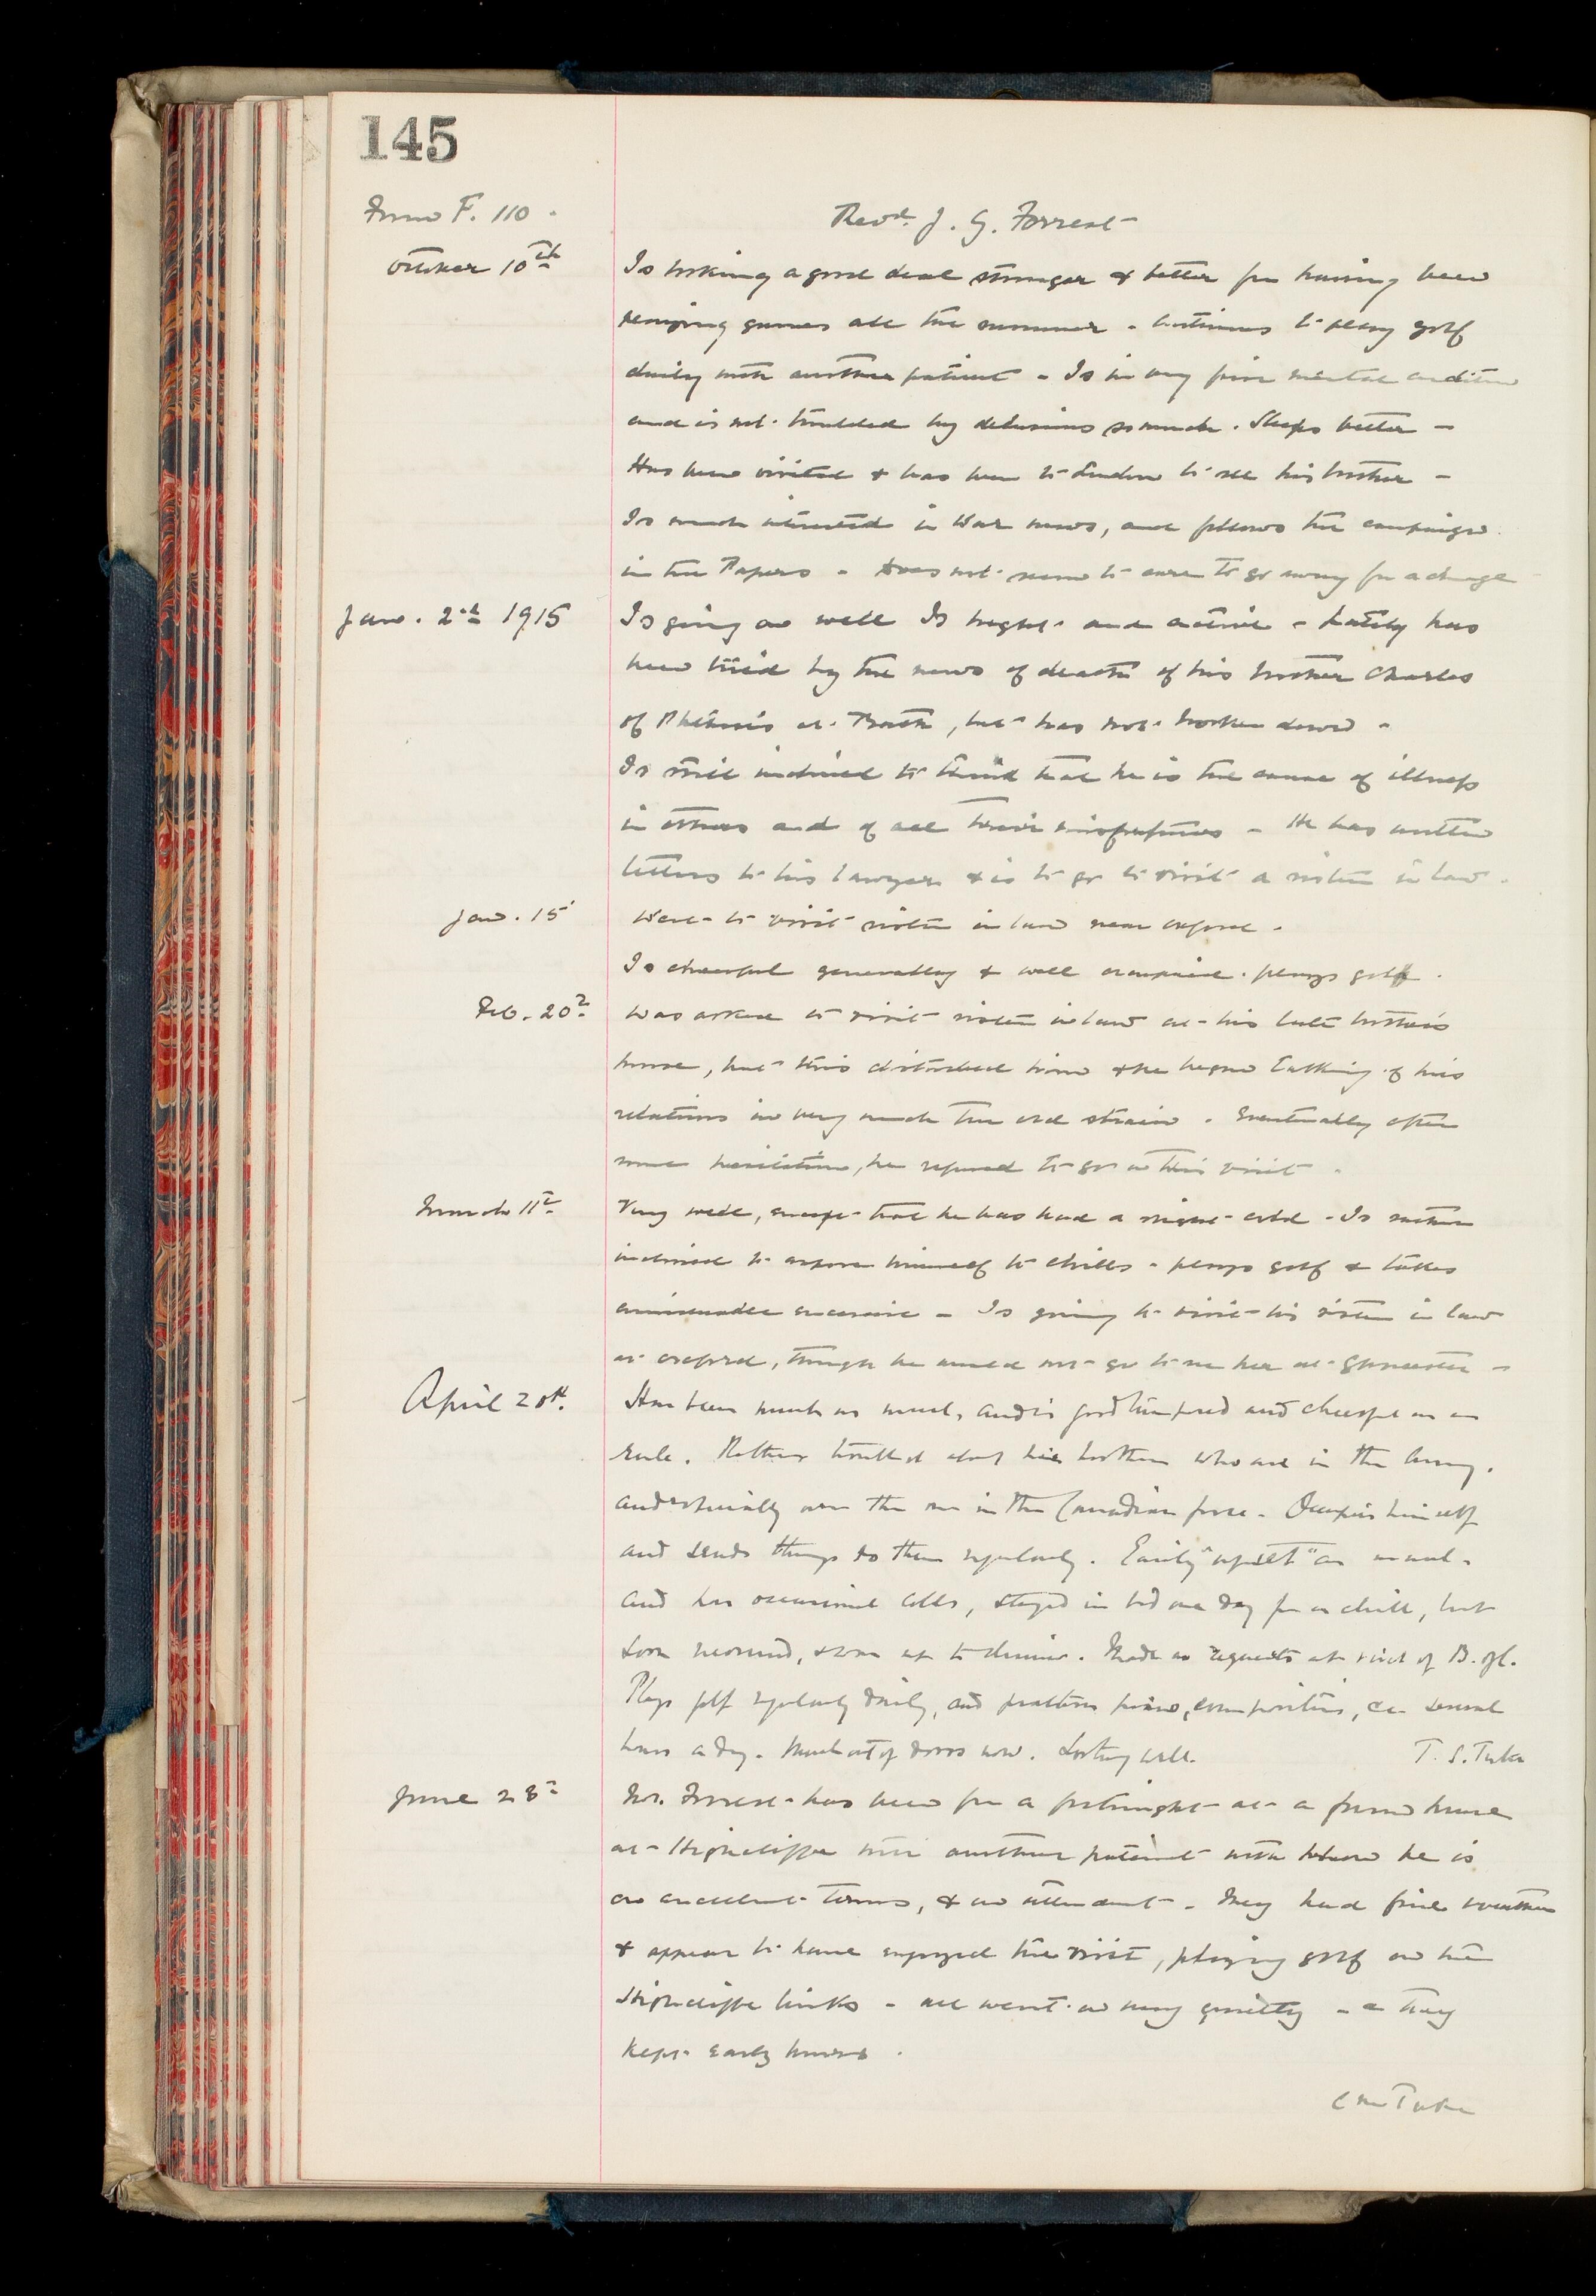 145
From F. 110.
Revd. J. G. Forrest
October 10th
Is looking a good deal stronger & better for having been
playing games all the summer. Continues to play golf
daily with another patient - Is in very fair mental condition
and is not troubled by delusions so much. Sleeps better -
Has been visited & has been to London to see his brother -
Is much interested in War news, and follows the campaign
in the Papers - does not seem to care to go away for a change
Jan. 2nd 1915
Is going on well Is bright and active - Lately has
been tried by the news of death of his brother Charles
of Phthisis at Bath, but has not broken down -
Is still inclined to think that he is the cause of illness
in others and of all their misfortunes - He has written
letters to his lawyer & is to go to visit a sister in law.
Jan. 15
Went to visit sister in law near Oxford.
Is cheerful generally & well occupied. plays golf.
Feb. 20th
Was asked to visit sister in law at his late brother's
house, but this disturbed him & he began talking of his
relations in very much the old strain. Eventually after
some hesitation, he refused to go on this visit.
March 11th
Very well, except that he has had a slight cold - Is rather
inclined to expose himself to chills - plays golf & takes
considerable exercise - Is going to visit his sister in law
at Oxford, though he would not go to see her at Gloucester -
April 20th.
Has been much as usual, and is good tempered and cheerful as a
rule. Rather troubled about his brothers who are in the Army,
and especially over the one in the Canadian force. Occupies himself
and sends things to them regularly. Easily "upset" as usual.
and has occasional colds, stayed in bed one day for a chill, but
soon recovered, & was up to dinner. Made no requests at visit of B. of C.
Plays golf regularly daily, and practises piano, composition, &c several
hours a day. Much out of doors now. Looking well.
T. S. Tuke
June 28th
Mr. Forrest has been for a fortnight at a farm house
at Highcliffe with another patient with whom he is
on excellent terms, & an attendant. They had fine weather
& appear to have enjoyed the visit, playing golf on the
Highcliffe links - all went on very quietly - & they
kept early hours.
C M Tuke